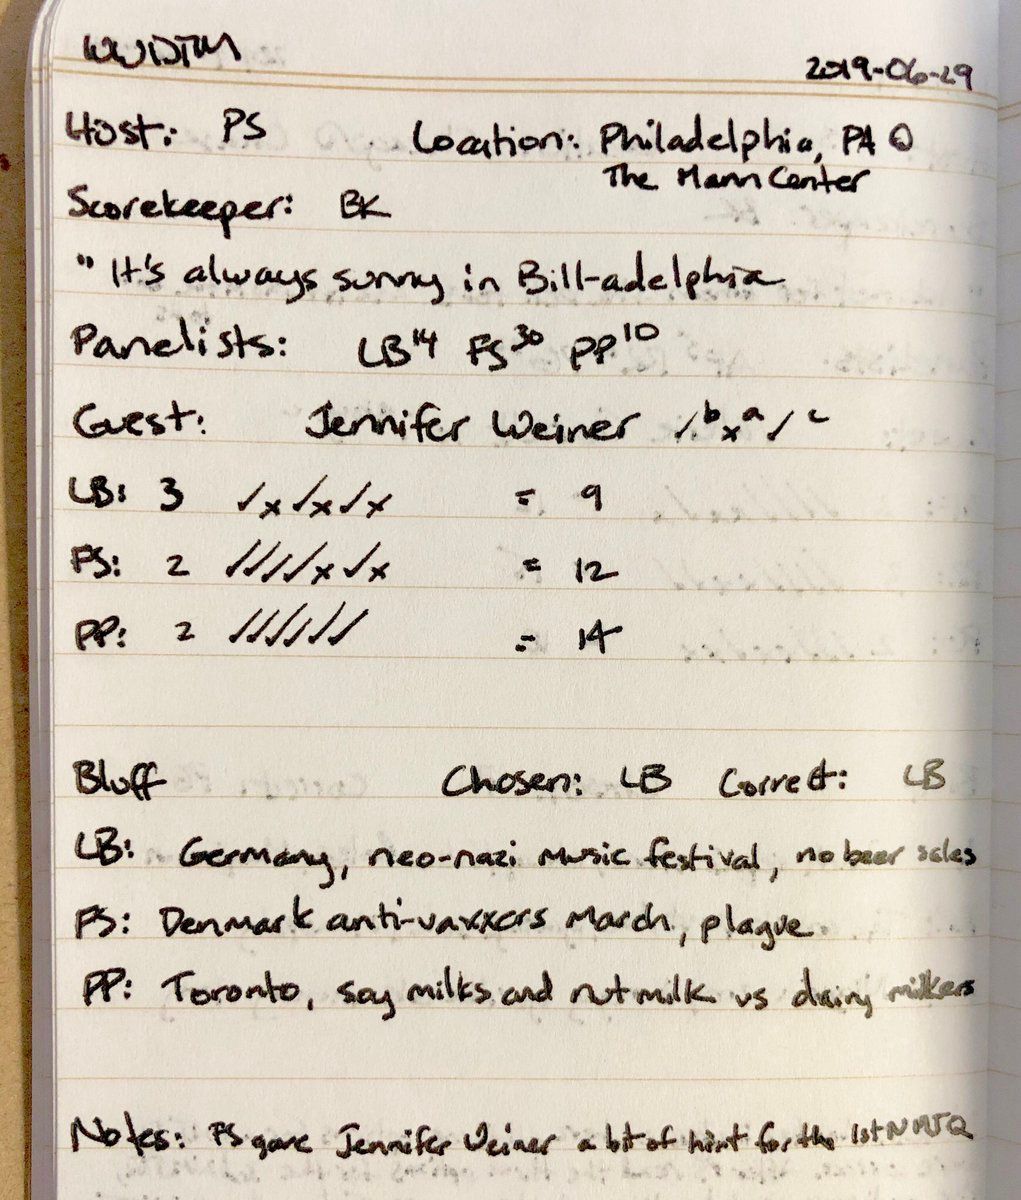 WWDTM
2019-06-29
Host: PS Location: Philadelphia, PA @
The Mann Center
Scorekeeper: BK
" It's always sunny in Bill-adelphia
Panelists: LB14 FS30 PP10
Guest: Jennifer Weiner ✓b xa ✓c
LB: 3 ✓x✓x✓x = 9
FS: 2 ✓✓✓✓x✓x = 12
PP: 2 ✓✓✓✓✓✓ = 14
Bluff Chosen: LB Correct: LB
LB: Germany, neo-nazi music festival, no beer sales
FS: Denmark anti-vaxxers March, plague
PP: Toronto, soy milks and nut milk vs dairy milkers
Notes: PS gave Jennifer Weiner a bit of hint for the 1st NMJQ